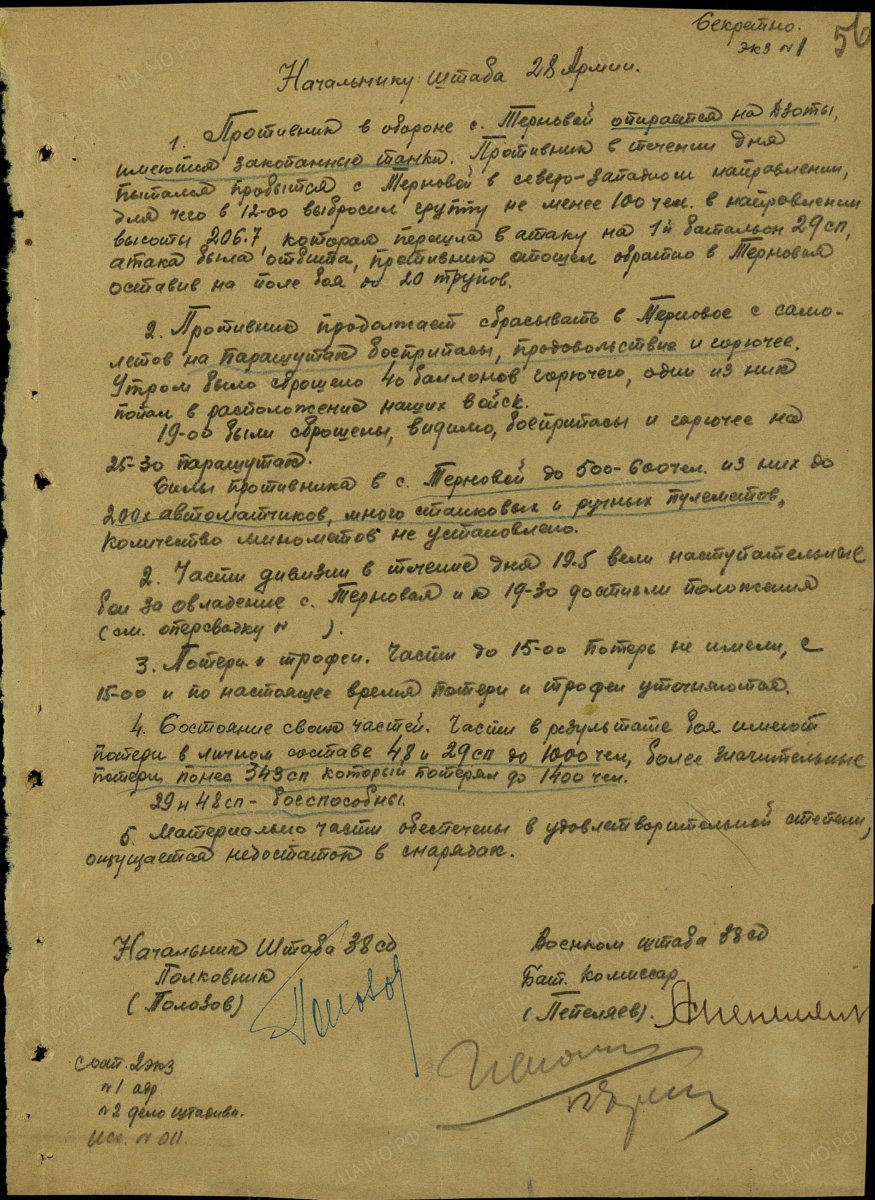 Секретно.
экз №1
56
Начальнику штаба 28 Армии.
1. Противник в обороне с. Терновой опирается на Дзоты,
имеются закопанные танки. Противник в течении дня
пытался пробытся с Терновой в северо-западном направлении,
для чего в 12-00 выбросил группу не менее 100 чел. в направлении
высоты 206.7, которая перешла в атаку на 1й батальон 29сп,
атака была отбита, противник отошел обратно в Терновая
оставив на поле боя до 20 трупов.
2. Противник продолжает сбрасывать в Терновое с само-
летов на парашутах боеприпасы, продовольствие и горючее.
Утром было сброшено 40 баллонов горючего, один из них
попал в расположение наших войск.
19-00 были сброшены, видимо, боеприпасы и горючее на
25-30 парашутах.
Силы противника в с. Терновой до 500-600чел. из них до
200х автоматчиков, много станковых и ручных пулеметов,
количество минометов не установлено.
2. Части дивизии в течение дня 19.5 вели наступательные
бои за овладение с. Терновая и к 19-30 достигли положения
(см. оперсводку № ).
3. Потери и трофеи. Части до 15-00 потерь не имели, с
15-00 и по настоящее время потери и трофеи уточняются.
4. Состояние своих частей. Части в результате боя имеют
потери в личном составе 48 и 29сп до 1000 чел, более значительные
потери понес 343сп который потерял до 1400 чел.
29 и 48сп - боеспособны.
5. Материально части обеспечены в удовлетворительной степени,
ощущается недостаток в снарядах.
Начальник Штаба 38сд
Полковник
(Полозов)
Военком штаба 38сд
Бат. Комиссар
(Пепеляев).
соот. 2экз
№1 адр
№2 дело штадива.
Исх. № 011
ЦАМО.РФ